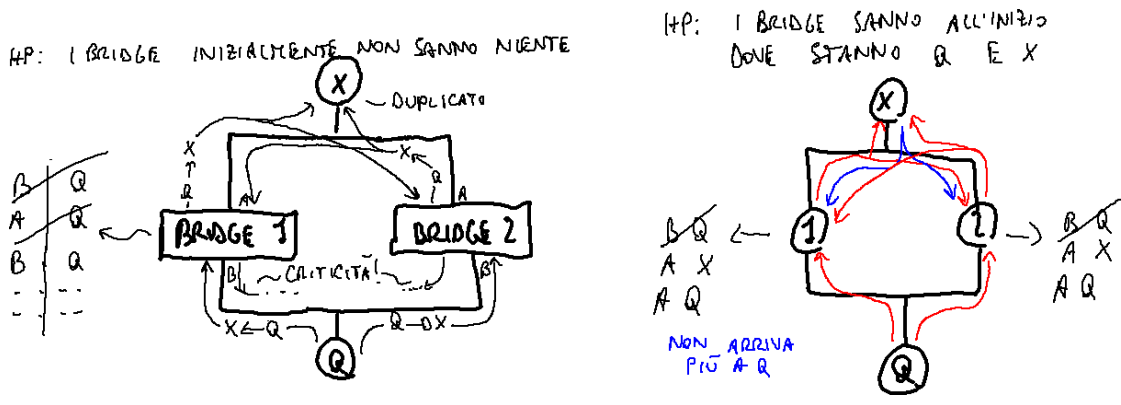 HP: I BRIDGE INIZIALMENTE NON SANNO NIENTE
X
DUPLICATO
X
X
Q
Q
A
A
B Q
A Q
B Q
BRIDGE 1
BRIDGE 2
B
CRITICITÀ!
B
X ← Q
Q → X
Q
HP: I BRIDGE SANNO ALL'INIZIO
DOVE STANNO Q E X
X
1
2
B Q
A X
A Q
B Q
A X
A Q
NON ARRIVA
PIÙ A Q
Q